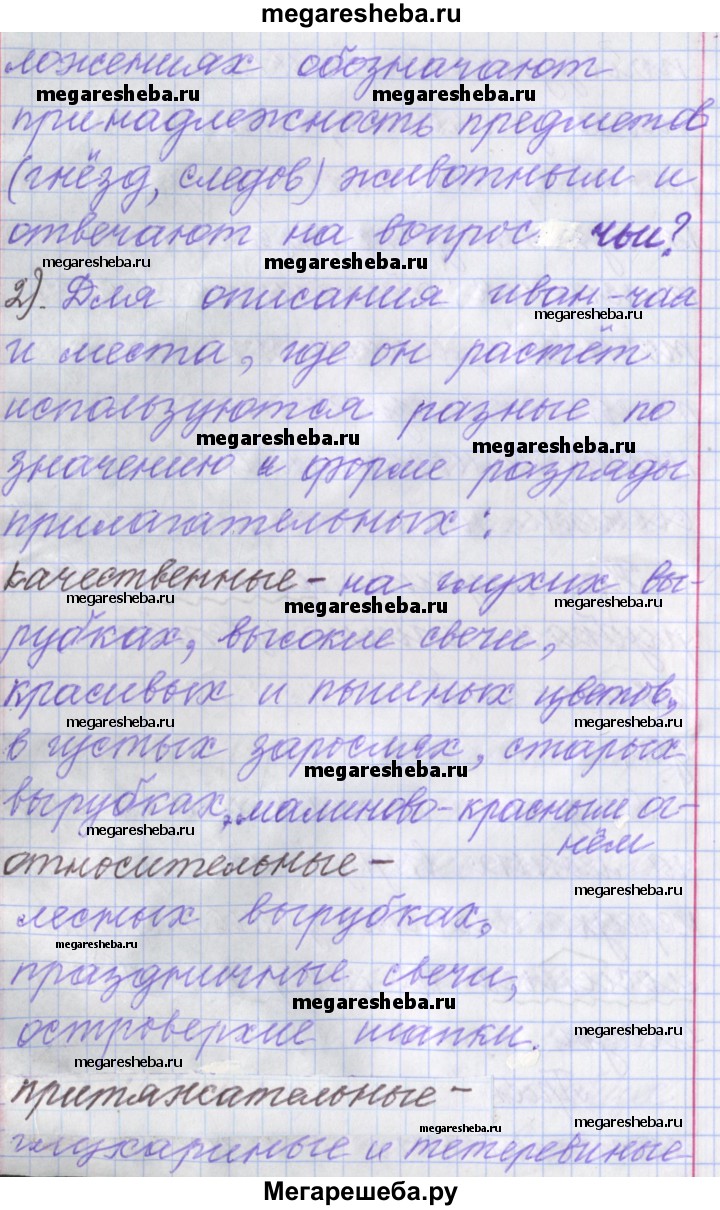 megaresheba.ru
ложениях обозначают
megaresheba.ru megaresheba.ru
принадлежность предметов
(гнёзд, следов) животным и
отвечают на вопрос чьи?
megaresheba.ru megaresheba.ru
2). Для описания иван-чая
megaresheba.ru
и места, где он растёт
используются разные по
megaresheba.ru megaresheba.ru
значению и форме разряды
прилагательных:
качественные - на глухих вы-
megaresheba.ru megaresheba.ru megaresheba.ru
рубках, высокие свечи,
красивых и пышных цветов,
megaresheba.ru megaresheba.ru
в густых зарослях, старых
megaresheba.ru
вырубках, малиново-красным ог-
megaresheba.ru
нём
относительные -
megaresheba.ru
лесных вырубках,
megaresheba.ru
праздничные свечи,
megaresheba.ru
островерхие шапки.
megaresheba.ru
megaresheba.ru
притяжательные -
megaresheba.ru
глухариные и тетеревиные
megaresheba.ru
Мегарешеба.ру